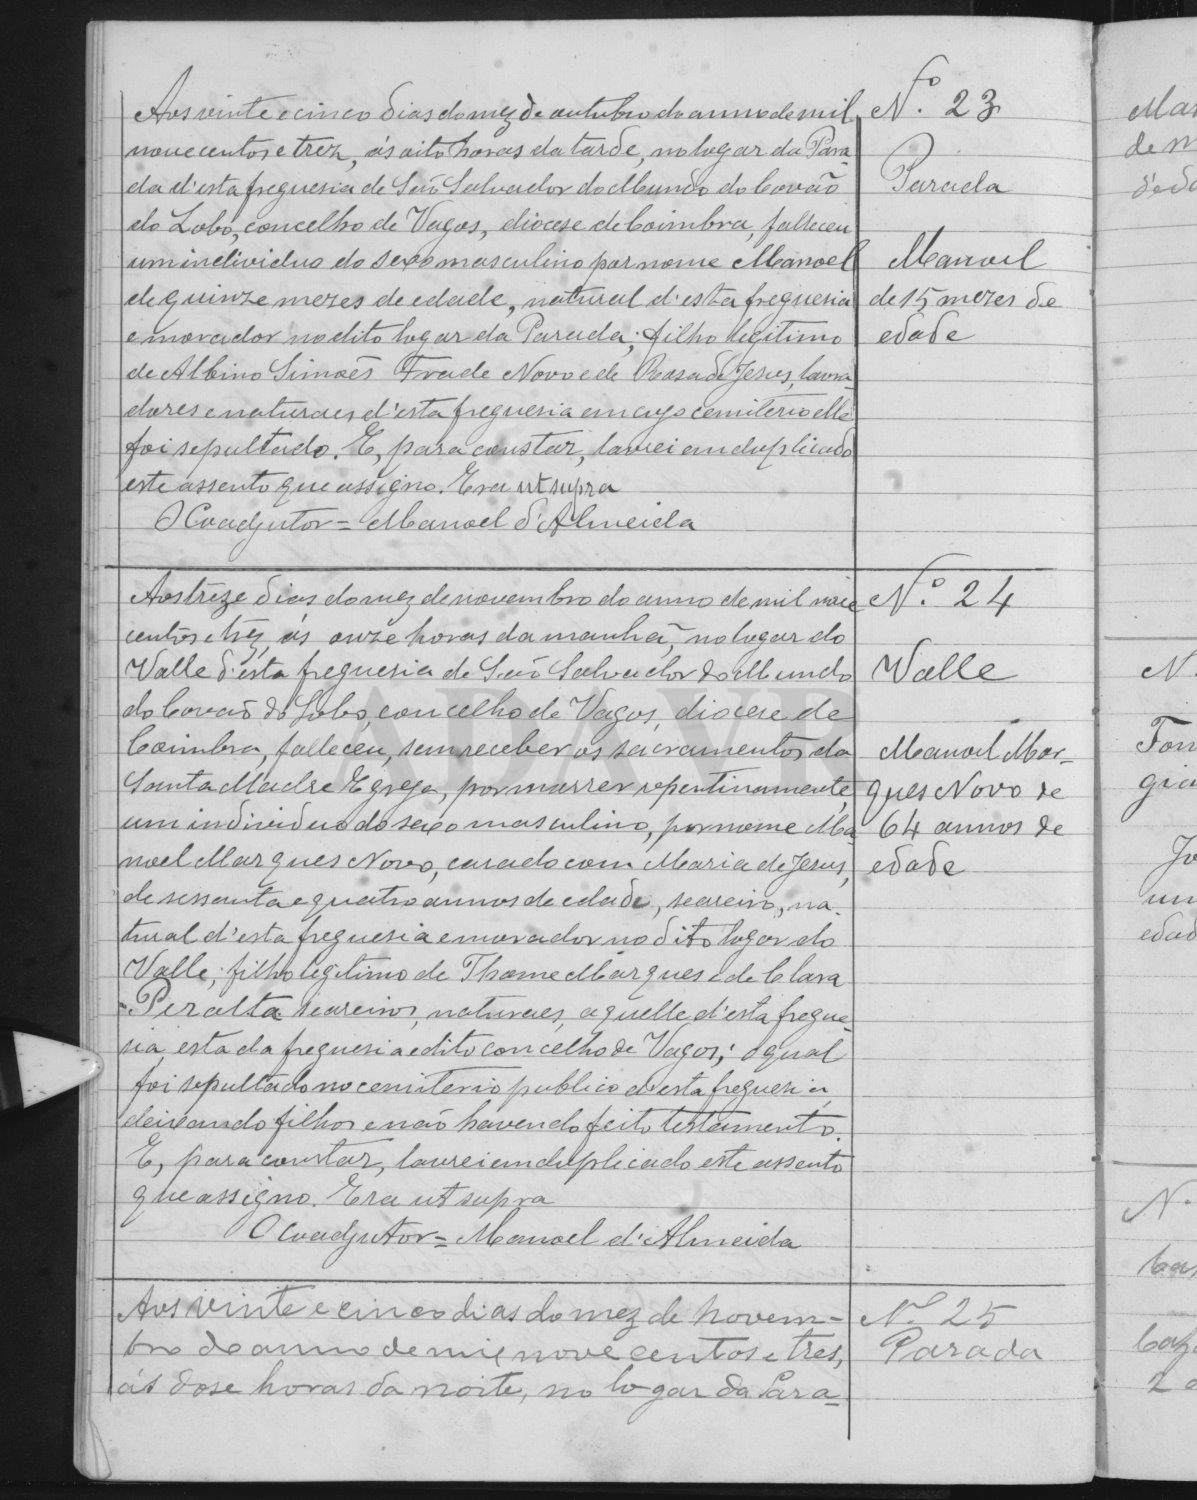 Aos vinte e cinco dias do mez de outubro do anno de mil
novecentos e trez, ás oito horas da tarde, no logar da Para-
da d'esta freguesia de São Salvador do Mundo do Covão
do Lobo, concelho de Vagos, diocese de Coimbra, falleceu
um individuo do sexo masculino por nome Manoel
de quinze mezes de edade, natural d'esta freguesia
e morador no dito logar da Parada; filho legitimo
de Albino Simoẽs Frade Novo e de Rosa de Jesus, lavra-
dores e naturaes d'esta freguesia em cujo cemiterio elle
foi sepultado. E, para constar, lavrei em duplicado
este assento que assigno. Era ut supra
O Coadjutor = Manoel d'Almeida
Nº. 23
Parada
Manoel
de 15 mezes de
edade
Aos treze dias do mez de novembro do anno de mil nove
centos e trez, ás onze horas da manhã, no logar do
Valle d'esta freguesia de São Salvador do Mundo
do Covão do Lobo, concelho de Vagos, diocese de
Coimbra, falleceu, sem receber os sacramentos da
Santa Madre Egreja, por morrer repentinamente,
um individuo do sexo masculino, por nome Ma-
noel Marques Novo, casado com Maria de Jesus,
de sessenta e quatro annos de edade, seareiro, na-
tural d'esta freguesia e morador no dito logar do
Valle; filho legitimo de Thome Marques e de Clara
Peralta seareiros, naturaes, aquelle d'esta fregue-
sia, esta da freguesia e dito concelho de Vagos; o qual
foi sepultado no cemiterio publico d'esta freguesia,
deixando filhos e não havendo feito testamento.
E, para constar, lavrei em duplicado este assento
que assigno. Era ut supra
O Coadjutor = Manoel d'Almeida
Nº. 24
Valle
Manoel Mar-
ques Novo de
64 annos de
edade
Aos vinte e cinco dias do mez de novem-
bro do anno de mil nove centos e tres,
ás dose horas da noite, no logar da Para-
Nº 25
Parada
ADAVR